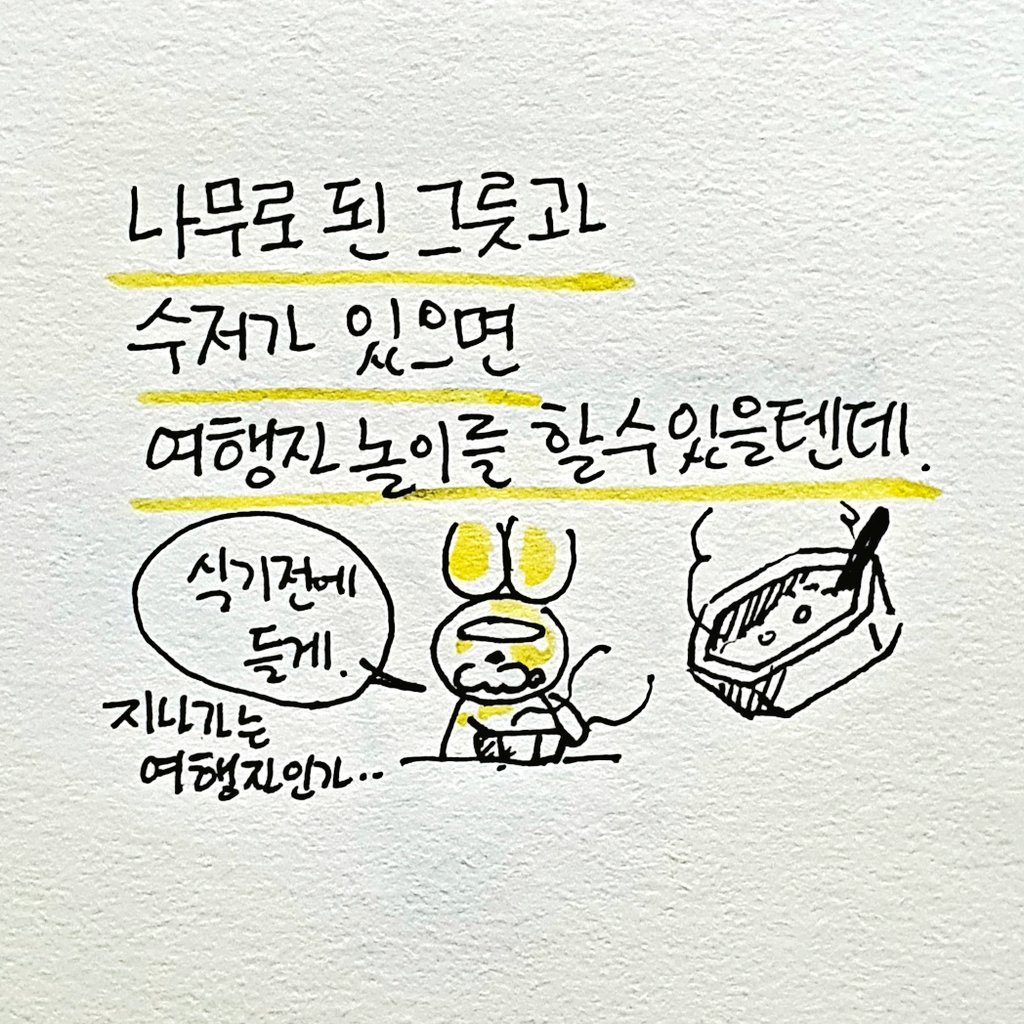 나무로 된 그릇과
수저가 있으면
여행자 놀이를 할 수 있을텐데.
식기전에
들게.
지나가는
여행자인가..